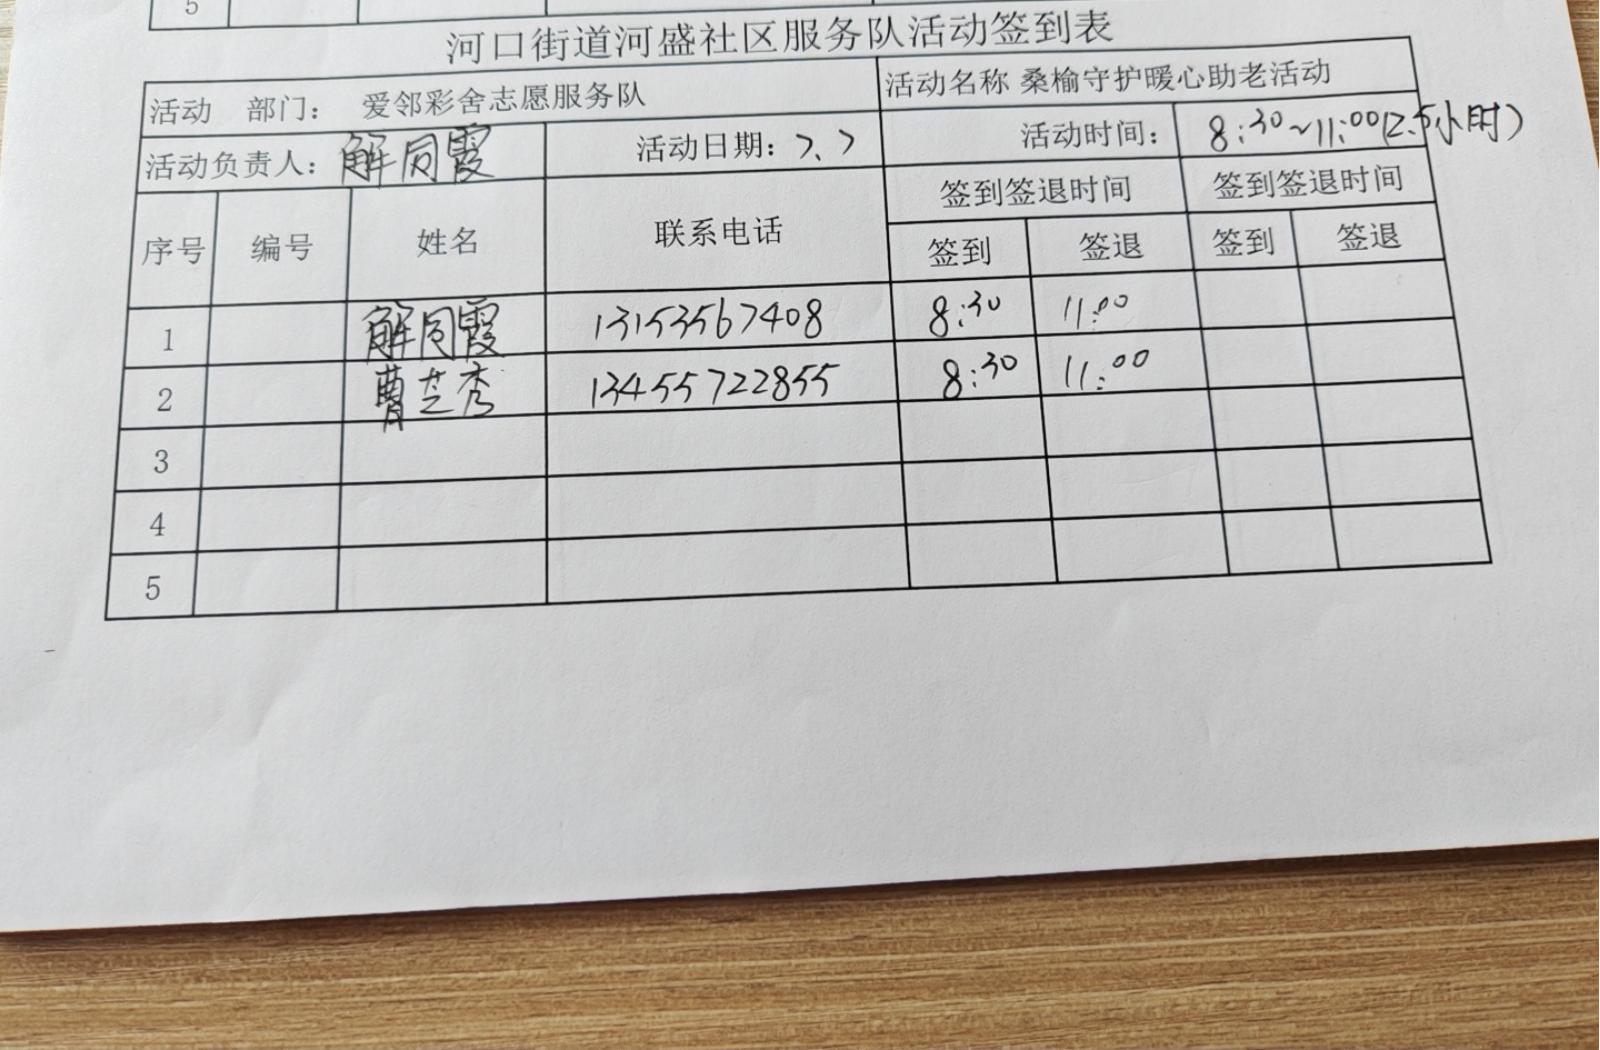 5
河口街道河盛社区服务队活动签到表
活动 部门： 爱邻彩舍志愿服务队 活动名称 桑榆守护暖心助老活动
活动负责人：解同霞 活动日期：7、7 活动时间： 8:30~11:00(2.5小时)
序号 编号 姓名 联系电话 签到签退时间 签到签退时间
签到 签退 签到 签退
1 解同霞 13153567408 8:30 11:00
2 曹芝秀 13455722855 8:30 11:00
3
4
5